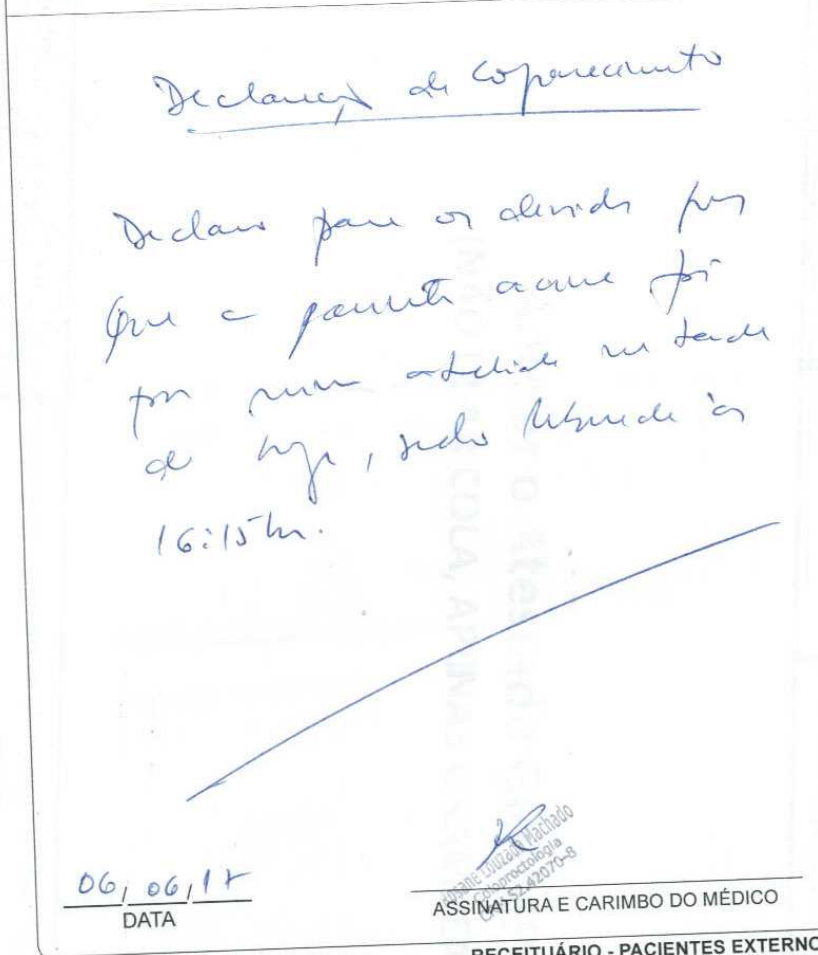 Declaração de Coparecimento
Declaro para os devidos fins
Que a paciente acima foi
por mim atendida na tarde
de hoje, sendo liberada às
16:15hr.
06/06/17
DATA
Louzada Machado
Coloproctologia
52.42070-8
ASSINATURA E CARIMBO DO MÉDICO
RECEITUÁRIO - PACIENTES EXTERNO